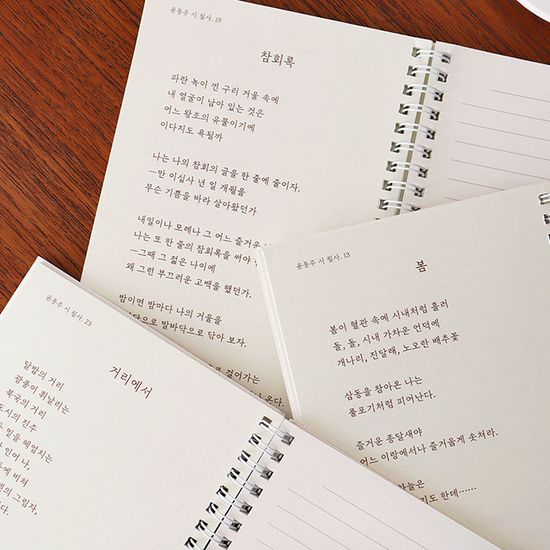 윤동주 시 필사. 19
참회록
파란 녹이 낀 구리 거울 속에
내 얼굴이 남아 있는 것은
어느 왕조의 유물이기에
이다지도 욕될까
나는 나의 참회의 글을 한 줄에 줄이자.
—만 이십사 년 일 개월을
무슨 기쁨을 바라 살아왔던가
내일이나 모레나 그 어느 즐거운
나는 또 한 줄의 참회록을 써야
—그때 그 젊은 나이에
왜 그런 부끄러운 고백을 했던가.
밤이면 밤마다 나의 거울을
발바닥으로 닦아 보자.
로 걸어가는
온다.
윤동주 시 필사. 13
봄
봄이 혈관 속에 시내처럼 흘러
돌, 돌, 시내 가차운 언덕에
개나리, 진달래, 노오란 배추꽃
삼동을 참아온 나는
풀포기처럼 피어난다.
즐거운 종달새야
어느 이랑에서나 즐거웁게 솟쳐라.
하늘은
기도 한데……
윤동주 시 필사. 23
거리에서
달밤의 거리
광풍이 휘날리는
북국의 거리
도시의 진주
밑을 헤엄치는
인어 나,
에 비쳐
의 그림자,